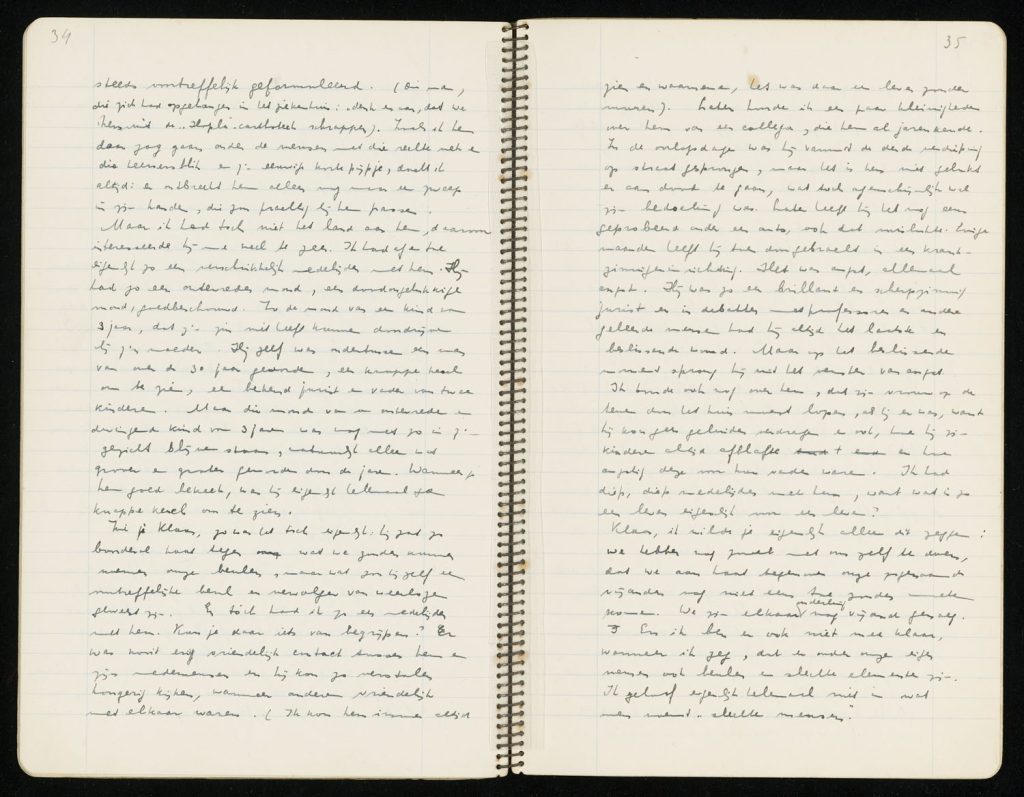 34
steeds voortreffelijk geformuleerd. (Die man,
die zich had opgehangen in het ziekenhuis: „denk er aan, dat we
hem uit de cartotheek schrappen). Zoals ik hem
daar zag gaan onder de mensen met die rechte nek en
die heersersblik en z'n eeuwige korte pijpje, dacht ik
altijd: er ontbreekt hem alleen nog maar een zweep
in zijn handen, die zou prachtig bij hem passen.
Maar ik had toch niet het land aan hem, daarvoor
interesseerde hij me veel te zeer. Ik had af en toe
eigenlijk zo een verschrikkelijk medelijden met hem. Hij
had zo een ontevreden mond, een doodongelukkige
mond, goedbeschouwd. Zo de mond van een kind van
3 jaar, dat z'n zin niet heeft kunnen doordrijven
bij z'n moeder. Hij zelf was ondertussen een man
van over de 30 jaar geworden, een knappe kerel
om te zien, een bekend jurist en vader van twee
kinderen. Maar die mond van een ontevreden en
dwingend kind van 3 jaar was nog net zo in z'n
gezicht blijven staan, natuurlijk alleen wat
grover en groter geworden door de jaren. Wanneer je
hem goed bekeek, was hij eigenlijk helemaal geen
knappe kerel om te zien.
Zie je Klaas, zo was het toch eigenlijk: hij zat zo
boordevol haat tegen wat we zouden kunnen
noemen onze beulen, maar wat zou hij zelf een
voortreffelijke beul en vervolger van weerlozen
geweest zijn. En tóch had ik zo een medelijden
met hem. Kun je daar iets van begrijpen? Er
was nooit enig vriendelijk contact tussen hem en
zijn medemensen en hij kon zo verstolen
hongerig kijken, wanneer anderen vriendelijk
met elkaar waren. (Ik kon hem immers altijd
35
zien en waarnemen, het was daar een leven zonder
muren). Later hoorde ik een paar kleinigheden
over hem van een collega, die hem al jaren kende.
In de oorlogsdagen was hij vanuit de derde verdieping
op straat gesprongen, maar het is hem niet gelukt
er aan dood te gaan, wat toch ogenschijnlijk wel
zijn bedoeling was. Later heeft hij het nog eens
geprobeerd onder een auto, ook dat mislukte. Enige
maanden heeft hij toen doorgebracht in een krank-
zinnigeninrichting. Het was angst, allemaal
angst. Hij was zo een brillant en scherpzinnig
jurist en in debatten met professoren en andere
geleerde mensen had hij altijd het laatste en
beslissende woord. Maar op het beslissende
moment sprong hij uit het venster van angst.
Ik hoorde ook nog over hem, dat zijn vrouw op de
tenen door het huis moest lopen, als hij er was, want
hij kon geen geluiden verdragen en ook, hoe hij zijn
kinderen altijd afblafte en hoe
angstig deze voor hun vader waren. Ik had
diep, diep medelijden met hem, want wat is zo
een leven eigenlijk voor een leven?
Klaas, ik wilde je eigenlijk alleen dit zeggen:
we hebben nog zoveel met ons zelf te doen,
dat we aan haat tegenover onze zogenaamde
vijanden nog niet eens toe zouden moeten
komen. We zijn elkaar onderling nog vijand genoeg.
En ik ben er ook niet mee klaar,
wanneer ik zeg, dat er onder onze eigen
mensen ook beulen en slechte elementen zijn.
Ik geloof eigenlijk helemaal niet in wat
men noemt „slechte mensen".